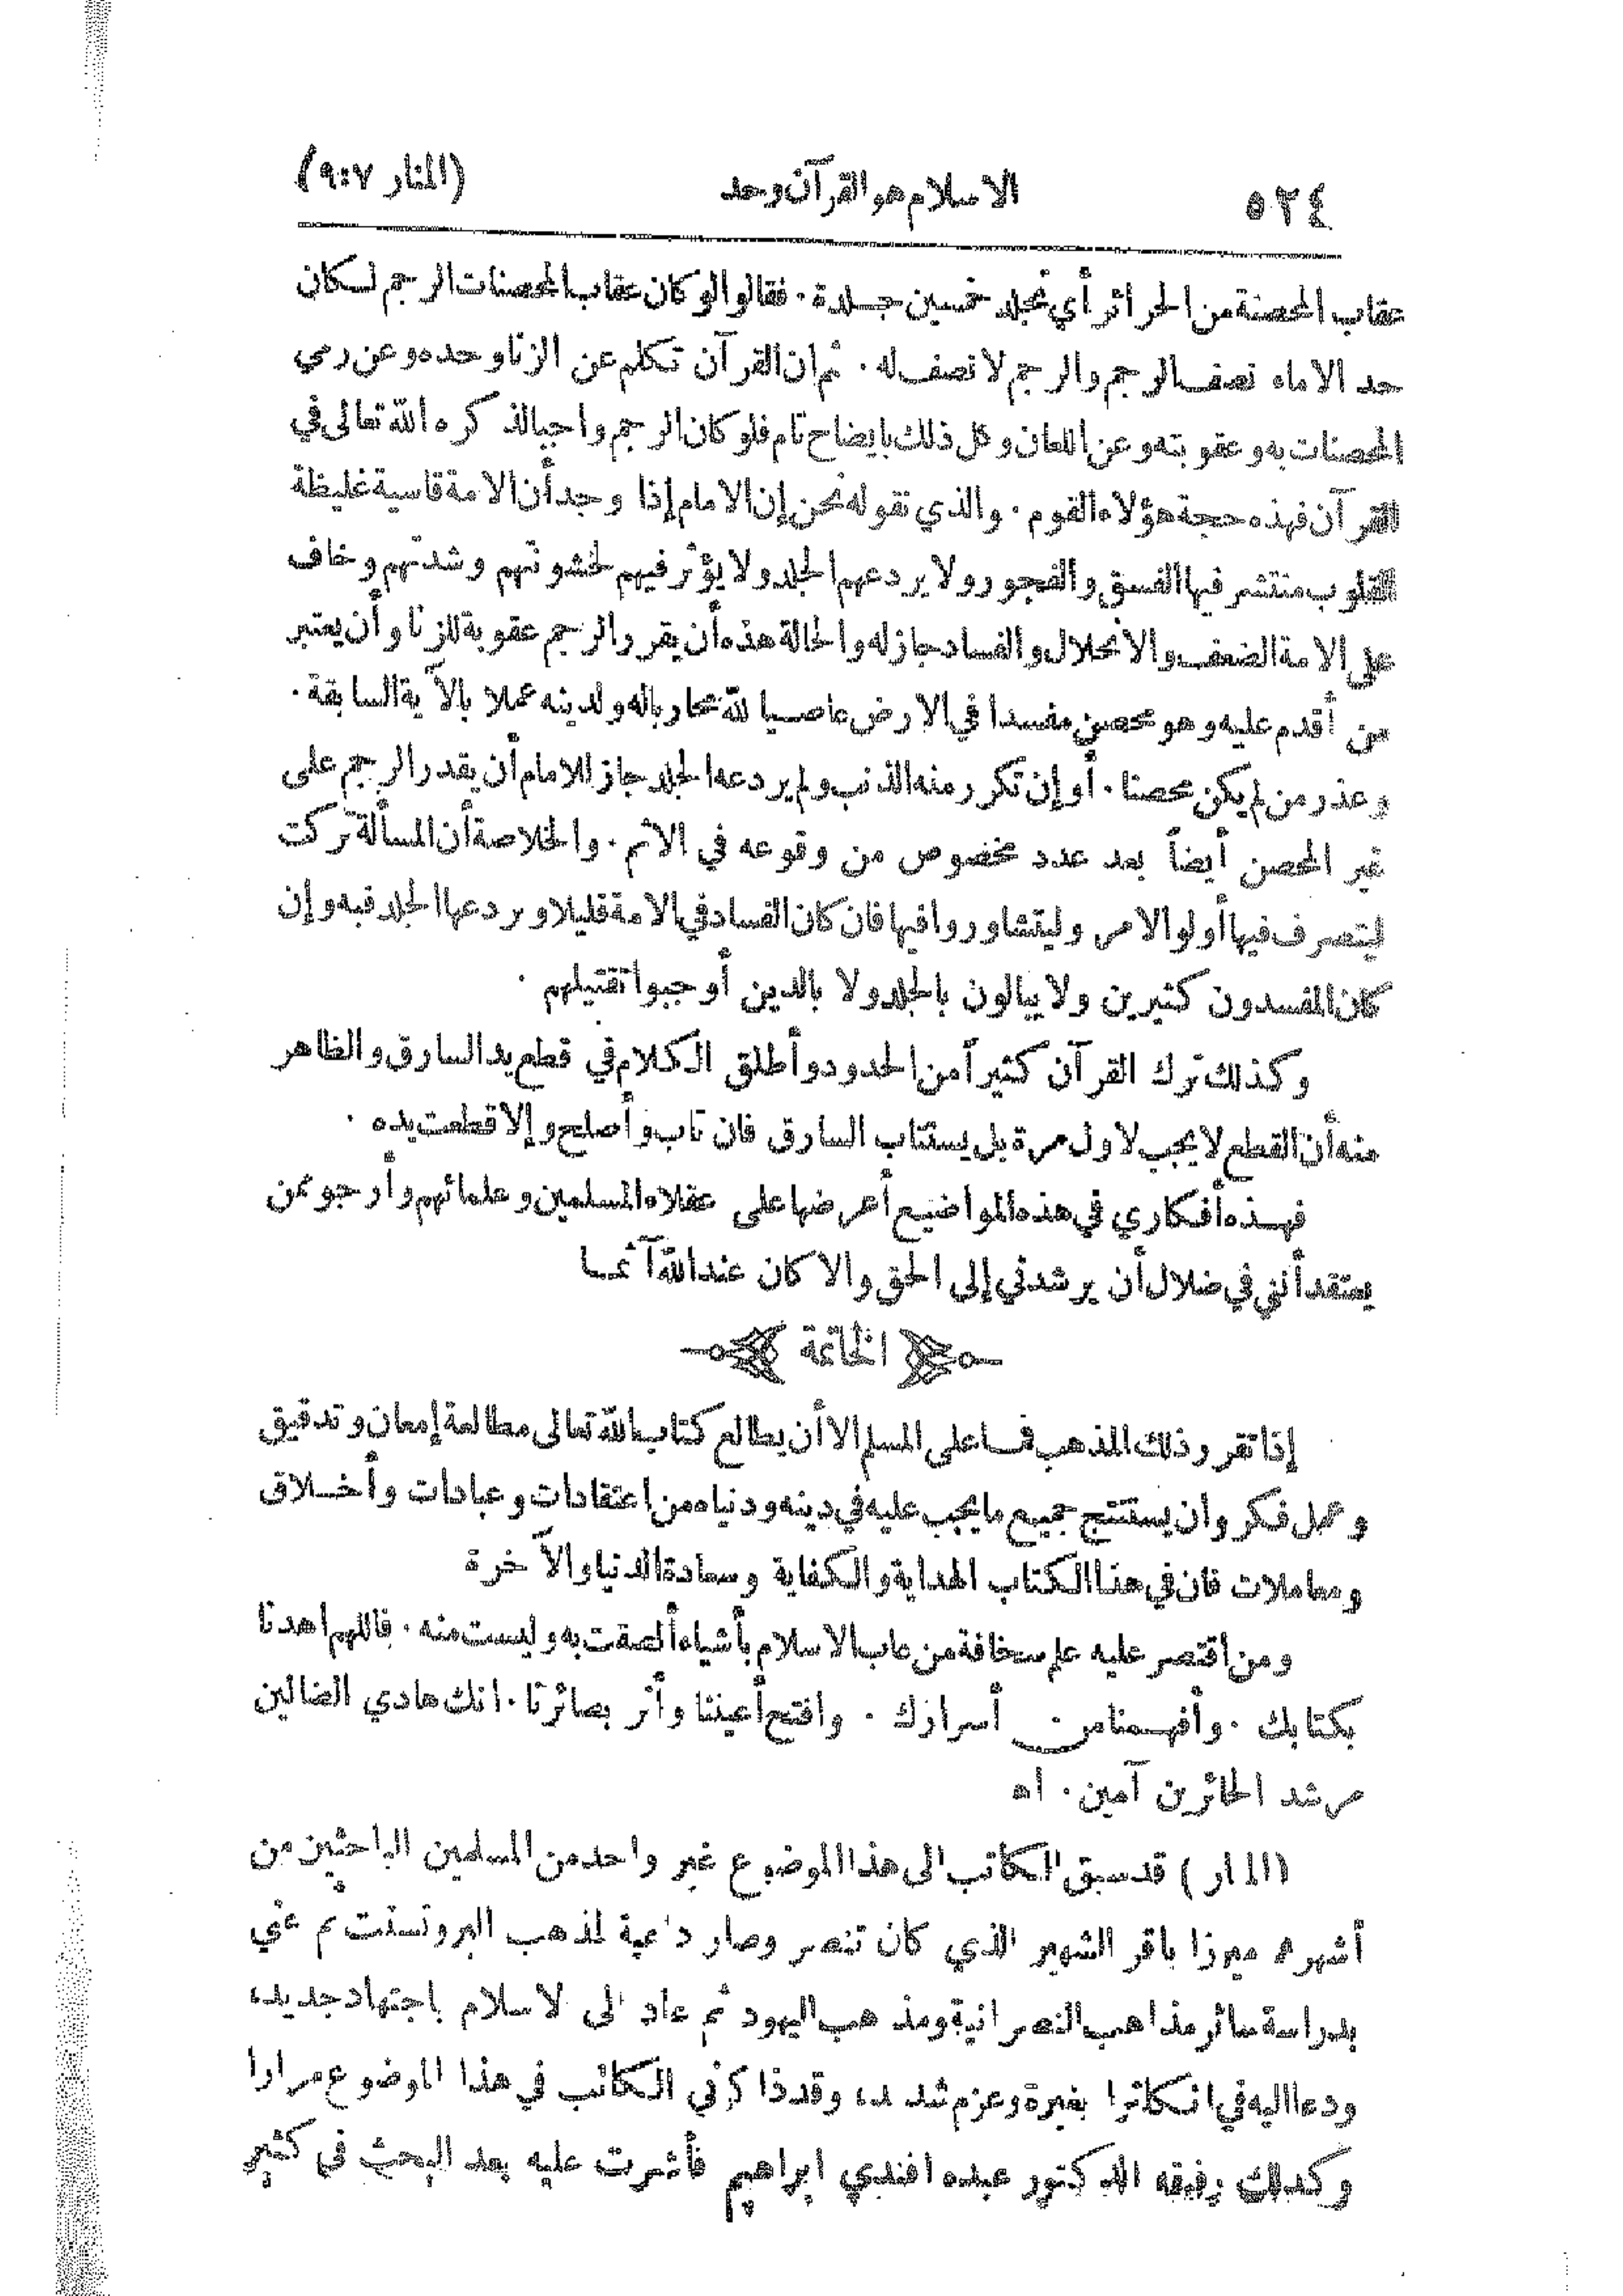 ٥٢٤ الاسلام هو القرآن وحد (المنار ٩:٧)
عقاب المحصنة من الحرائر أي تجلد خمسين جلدة . فقالوا لو كان عقاب المحصنات الرجم لكان
حد الاماء نصف الرجم والرجم لا نصف له . ثم ان القرآن تكلم عن الزنا وحده وعن رمي
المحصنات به وعقوبته وعن اللعان وكل ذلك بايضاح تام فلو كان الرجم واجبا لذكره الله تعالى في
القرآن فهذه حجة هؤلاء القوم . والذي نقوله نحن إن الامام إذا وجد أن الامة قاسية غليظة
القلوب منتشر فيها الفسق والفجور ولا يردعهم الجلد ولا يؤثر فيهم لخشونتهم وشدتهم وخاف
على الامة الضعف والانحلال والفساد جاز له والحالة هذه أن يقرر الرجم عقوبة للزنا وأن يعتبر
من أقدم عليه وهو محصن مفسدا في الارض عاصيا لله محاربا له ولدينه عملا بالآية السابقة .
وعذر من لم يكن محصنا . أو إن تكرر منه الذنب ولم يردعه الجلد جاز للامام أن يقدر الرجم على
غير المحصن أيضاً بعد عدد مخصوص من وقوعه في الاثم . والخلاصة أن المسألة تركت
ليتصرف فيها أولو الامر وليتشاوروا فيها فان كان الفساد في الامة قليلا ويردعها الجلد فبه وإن
كان المفسدون كثيرين ولا يبالون بالجلد ولا بالدين أوجبوا تقتيلهم .
وكذلك ترك القرآن كثيراً من الحدود وأطلق الكلام في قطع يد السارق والظاهر
منه أن القطع لا يجب لاول مرة بل يستتاب السارق فان تاب وأصلح وإلا قطعت يده .
فهذه أفكاري في هذه المواضيع أعرضها على عقلاء المسلمين وعلمائهم وأرجو ممن
يعتقد أنني في ضلال أن يرشدني إلى الحق والا كان عند الله آثما
الخاتمة
إذا تقرر ذلك المذهب فما على المسلم الا أن يطالع كتاب الله تعالى مطالعة إمعان وتدقيق
وعمل فكر وان يستنتج جميع ما يجب عليه في دينه ودنياه من اعتقادات وعبادات وأخلاق
ومعاملات فان في هذا الكتاب الهداية والكفاية وسعادة الدنيا والآخرة
ومن اقتصر عليه علم سخافة من عاب الاسلام بأشياء ألصقت به وليست منه . فاللهم اهدنا
بكتابك . وأفهمنا من أسرارك . وافتح أعيننا وأنر بصائرنا . انك هادي الضالين
مرشد الحائرين آمين . اه
(المنار) قد سبق الكاتب الى هذا الموضوع غير واحد من المسلمين الباحثين من
أشهرهم ميرزا باقر الشهير الذي كان تنصر وصار داعية لمذهب البروتستنت ثم عني
بدراسة سائر مذاهب النصرانية ومذهب اليهود ثم عاد الى الاسلام باجتهاد جديد،
ودعا اليه في انكلترا بغيرة وعزم شديد، وقد ذاكرني الكاتب في هذا الموضوع مرارا
وكذلك رفيقه الدكتور عبده افندي ابراهيم فأشرت عليه بعد البحث في كثير